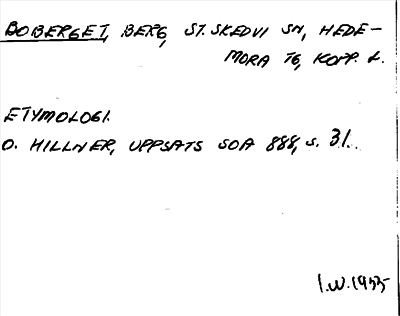 BOBERGET, BERG, ST. SKEDVI SN, HEDE-
MORA TG, KOPP. L.
ETYMOLOGI.
O. HILLNER, UPPSATS SOA 888, S. 31.
I.W. 1935